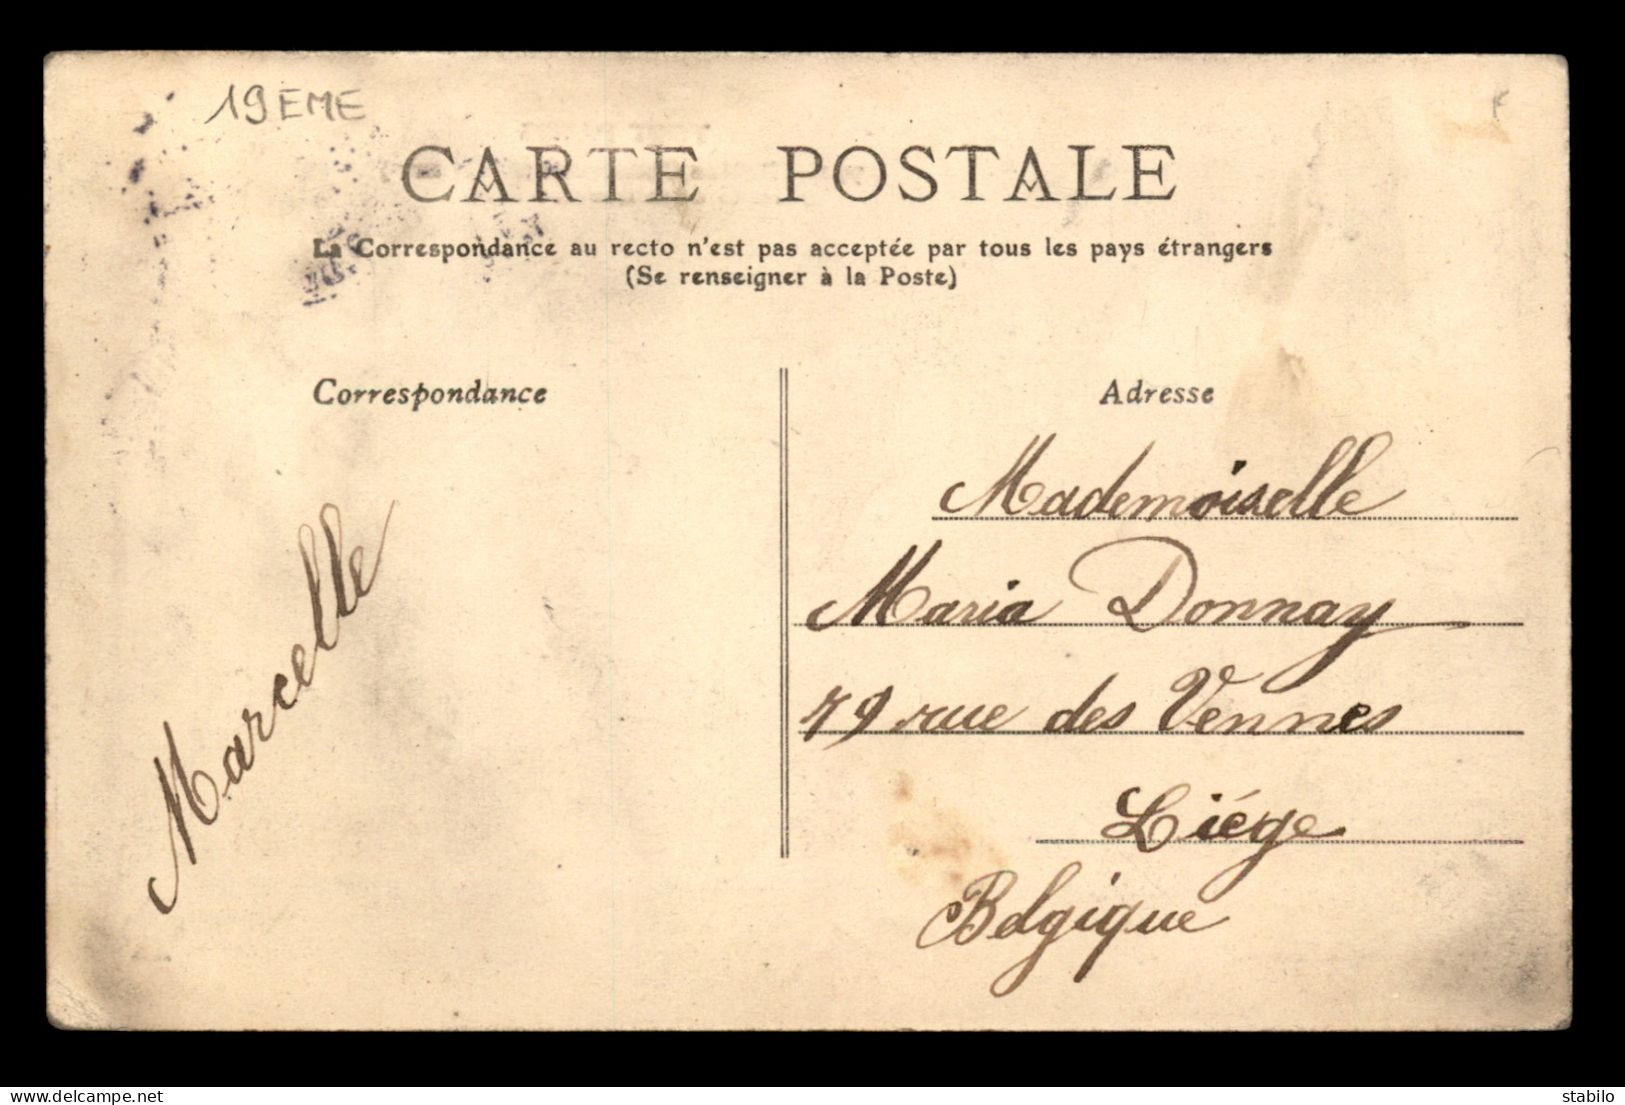 19EME
CARTE POSTALE
La Correspondance au recto n'est pas acceptée par tous les pays étrangers
(Se renseigner à la Poste)
Correspondance
Adresse
Marcelle
Mademoiselle
Maria Donnay
79 rue des Vennes
Liége
Belgique
delcampe.net
stabilo